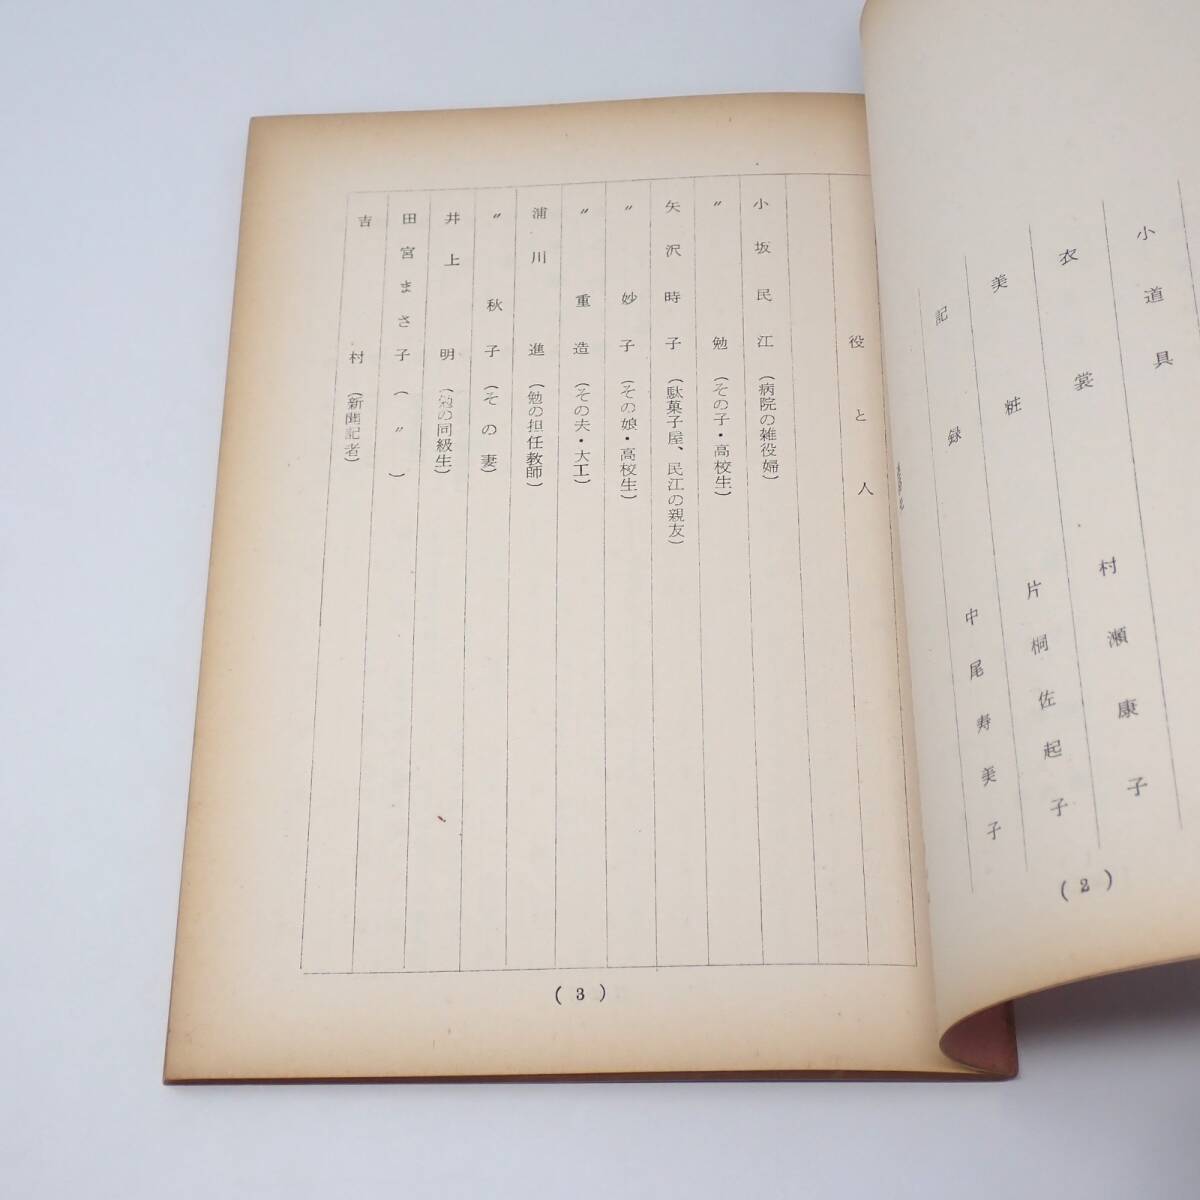 小道具 村瀬康子
衣裳 片桐佐起子
美粧 中尾寿美子
記録
(2)
役と人
小坂民江(病院の雑役婦)
〃 勉(その子・高校生)
矢沢時子(駄菓子屋、民江の親友)
〃 妙子(その娘・高校生)
〃 重造(その夫・大工)
浦川 進(勉の担任教師)
〃 秋子(その妻)
井上 明(勉の同級生)
田宮まさ子(〃)
吉村(新聞記者)
(3)